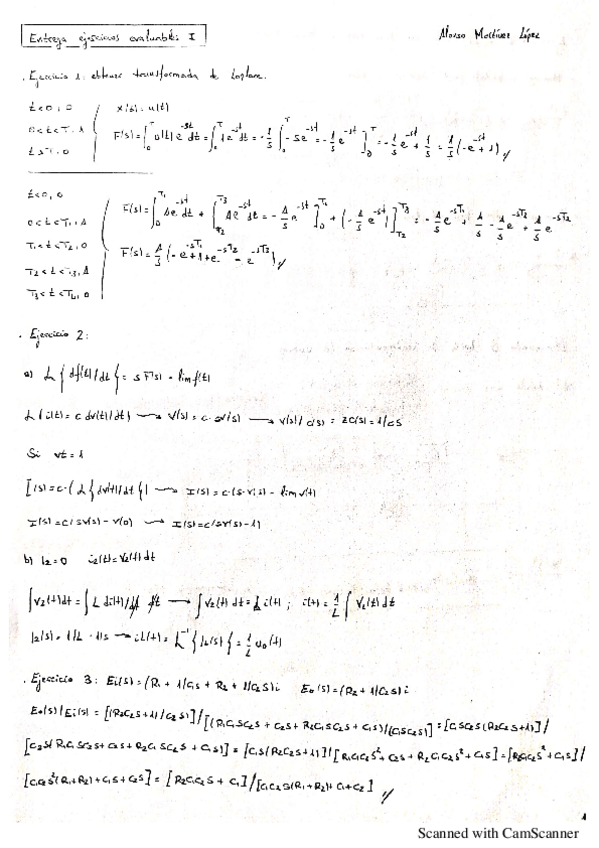 Entrega ejercicios evaluables I
Alonso Martínez López
. Ejercicio 1: obtener transformada de Laplace.
t<0, 0
x(s) = u(t)
0<t<T, 1
F(s) = ∫₀ᵀ u(t) e^-st dt = ∫₀ᵀ 1e^-st dt = -1/s ∫₀ᵀ -se^-st = -1/s e^-st]₀ᵀ = -1/s e^-st + 1/s = 1/s (-e^-st + 1)
t≤T, 0
t<0, 0
0<t<T₁, 1
F(s) = ∫₀^T₁ 1e^-st dt + ∫_T₂^T₃ 1e^-st dt = -1/s e^-st]₀^T₁ + (-1/s e^-st)]_T₂^T₃ = -1/s e^-sT₁ + 1/s - 1/s e^-sT₂ + 1/s e^-sT₂
T₁<t<T₂, 0
F(s) = 1/s (-e^-sT₁ + 1 + e^-sT₂ - e^-sT₃)
T₂<t<T₃, 1
T₃<t<T₄, 0
. Ejercicio 2:
a) L { df(t)/dt } = s F(s) - lim f(t)
L (i(t) = c dv(t)/dt) → I(s) = c · sV(s) → V(s)/I(s) = Zc(s) = 1/cs
Si vt = 1
I(s) = c · (L { dv(t)/dt }) → I(s) = c · (s · V(s) - lim v(t)
I(s) = c/sv(s) - v(0) → I(s) = c/sv(s) - 1)
b) I₂ = 0 i₂(t) = v₂(t) dt
∫ v₂(t) dt = ∫ L di(t)/dt dt → ∫ v₂(t) dt = L i(t) ; i(t) = 1/L ∫ v₂(t) dt
I₂(s) = 1/L · 1/s → iL(t) = L⁻¹ { I₂(s) } = 1/L u₀(t)
. Ejercicio 3: Ei(s) = (R₁ + 1/C₁s + R₂ + 1/C₂s) i E₀(s) = (R₂ + 1/C₂s) i
E₀(s)/Ei(s) = [(R₂C₂s+1)/C₂s)] / [(R₁C₁SC₂s + C₂s + R₂C₁SC₂s + C₁s)/C₁SC₂s)] = [C₁SC₂s(R₂C₂s+1)] /
[C₂s(R₁C₁SC₂s + C₂s + R₂C₁SC₂s + C₁s)] = [C₁s(R₂C₂s+1)] / [R₁C₁C₂s² + C₂s + R₂C₁C₂s² + C₁s] = [R₂C₁C₂s² + C₁s] /
[C₁C₂s²(R₁+R₂) + C₁s + C₂s] = [R₂C₁C₂s + C₁] / [C₁C₂s(R₁+R₂) + C₁ + C₂]
1
Scanned with CamScanner